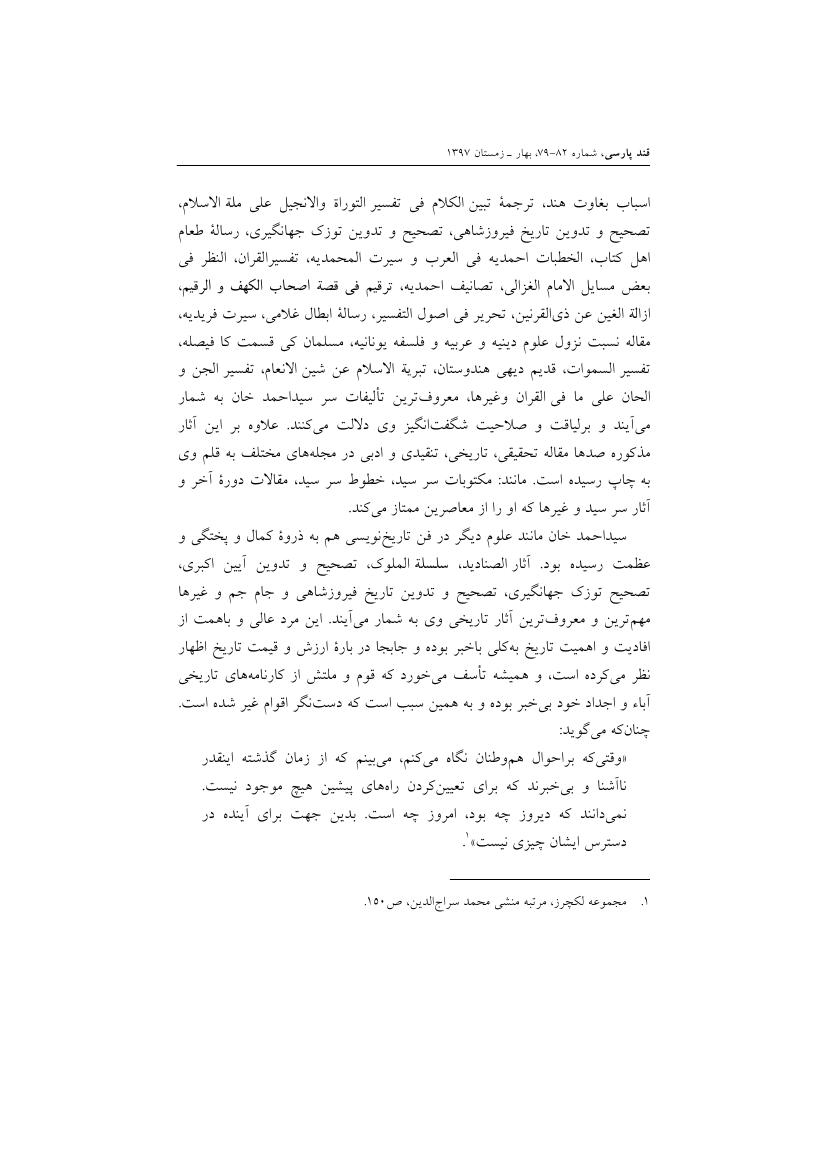 قند پارسی، شماره ۸۲-۷۹، بهار ـ زمستان ۱۳۹۷
اسباب بغاوت هند، ترجمۀ تبین الکلام فی تفسیر التوراة والانجیل علی ملة الاسلام،
تصحیح و تدوین تاریخ فیروزشاهی، تصحیح و تدوین توزک جهانگیری، رسالۀ طعام
اهل کتاب، الخطبات احمدیه فی العرب و سیرت المحمدیه، تفسیرالقران، النظر فی
بعض مسایل الامام الغزالی، تصانیف احمدیه، ترقیم فی قصة اصحاب الکهف و الرقیم،
ازالة الغین عن ذی‌القرنین، تحریر فی اصول التفسیر، رسالۀ ابطال غلامی، سیرت فریدیه،
مقاله نسبت نزول علوم دینیه و عربیه و فلسفه یونانیه، مسلمان کی قسمت کا فیصله،
تفسیر السموات، قدیم دیهی هندوستان، تبریة الاسلام عن شین الانعام، تفسیر الجن و
الحان علی ما فی القران وغیرها، معروف‌ترین تألیفات سر سیداحمد خان به شمار
می‌آیند و برلیاقت و صلاحیت شگفت‌انگیز وی دلالت می‌کنند. علاوه بر این آثار
مذکوره صدها مقاله تحقیقی، تاریخی، تنقیدی و ادبی در مجله‌های مختلف به قلم وی
به چاپ رسیده است. مانند: مکتوبات سر سید، خطوط سر سید، مقالات دورۀ آخر و
آثار سر سید و غیرها که او را از معاصرین ممتاز می‌کند.
سیداحمد خان مانند علوم دیگر در فن تاریخ‌نویسی هم به ذروۀ کمال و پختگی و
عظمت رسیده بود. آثار الصنادید، سلسلة الملوک، تصحیح و تدوین آیین اکبری،
تصحیح توزک جهانگیری، تصحیح و تدوین تاریخ فیروزشاهی و جام جم و غیرها
مهم‌ترین و معروف‌ترین آثار تاریخی وی به شمار می‌آیند. این مرد عالی و باهمت از
افادیت و اهمیت تاریخ به‌کلی باخبر بوده و جابجا در بارۀ ارزش و قیمت تاریخ اظهار
نظر می‌کرده است، و همیشه تأسف می‌خورد که قوم و ملتش از کارنامه‌های تاریخی
آباء و اجداد خود بی‌خبر بوده و به همین سبب است که دست‌نگر اقوام غیر شده است.
چنان‌که می‌گوید:
«وقتی‌که براحوال هم‌وطنان نگاه می‌کنم، می‌بینم که از زمان گذشته اینقدر
ناآشنا و بی‌خبرند که برای تعیین‌کردن راه‌های پیشین هیچ موجود نیست.
نمی‌دانند که دیروز چه بود، امروز چه است. بدین جهت برای آینده در
دسترس ایشان چیزی نیست»۱.
۱. مجموعه لکچرز، مرتبه منشی محمد سراج‌الدین، ص ۱۵۰.